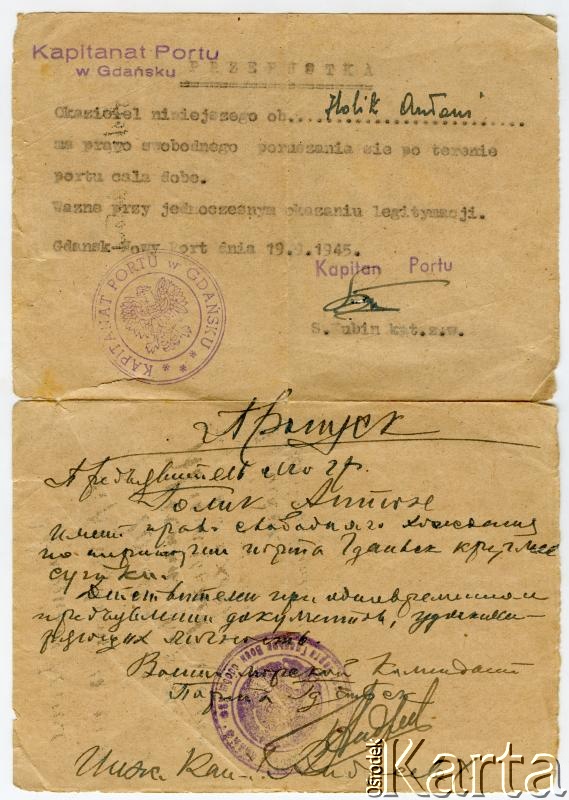 Kapitanat Portu
w Gdańsku
PRZEPUSTKA
Okaziciel niniejszego ob. Holik Antoni
ma prawo swobodnego poruszania sie po terenie
portu cala dobe.
Wazne przy jednoczesnym okazaniu legitymacji.
Gdansk-Nowy Port dnia 19.9.1945.
Kapitan Portu
KAPITANAT PORTU w GDAŃSKU
S. Kubin kpt.z.w.
Пропуск
Предъявитель сего гр.
Голик Антон
имеет право свободного хождения
по территории порта Гданьск круглые
сутки.
Действителен при одновременном
предъявлении документов, удостове-
ряющих личность.
Военно-морской Комендант
Порта Гданьск
Инж. Кап.
Ośrodek
Karta